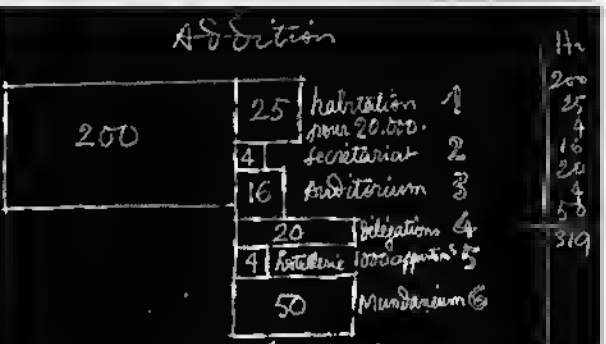 Addition
200
25 habitation 1
pour 20.000.
4 secrétariat 2
16 Auditorium 3
20 Délégations 4
4 hotellerie 1000 appartmts 5
50 Mundaneum 6
Ha
200
25
4
16
20
4
50
319